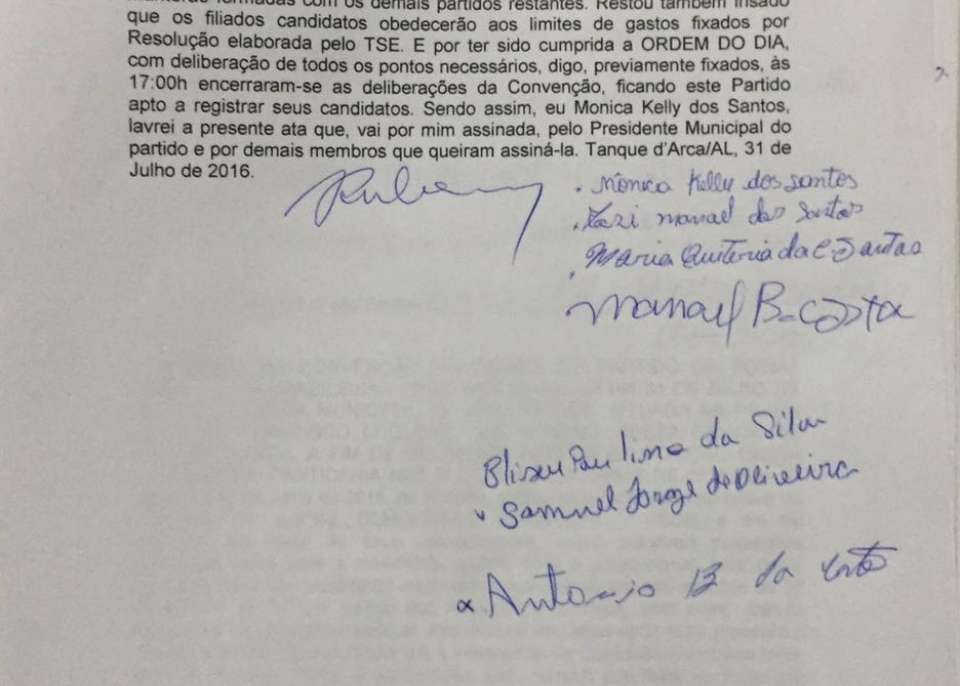 com os demais partidos restantes. Restou também
que os filiados candidatos obedecerão aos limites de gastos fixados por
Resolução elaborada pelo TSE. E por ter sido cumprida a ORDEM DO DIA,
com deliberação de todos os pontos necessários, digo, previamente fixados, às
17:00h encerraram-se as deliberações da Convenção, ficando este Partido
apto a registrar seus candidatos. Sendo assim, eu Monica Kelly dos Santos,
lavrei a presente ata que, vai por mim assinada, pelo Presidente Municipal do
partido e por demais membros que queiram assiná-la. Tanque d'Arca/AL, 31 de
Julho de 2016.
Monica Kelly dos Santos
manoel dos Santos
Maria Quiteria da
Manoel B. Costa
Eliseu Paulino da Silva
Samuel Jorge de Oliveira
Antonio B da